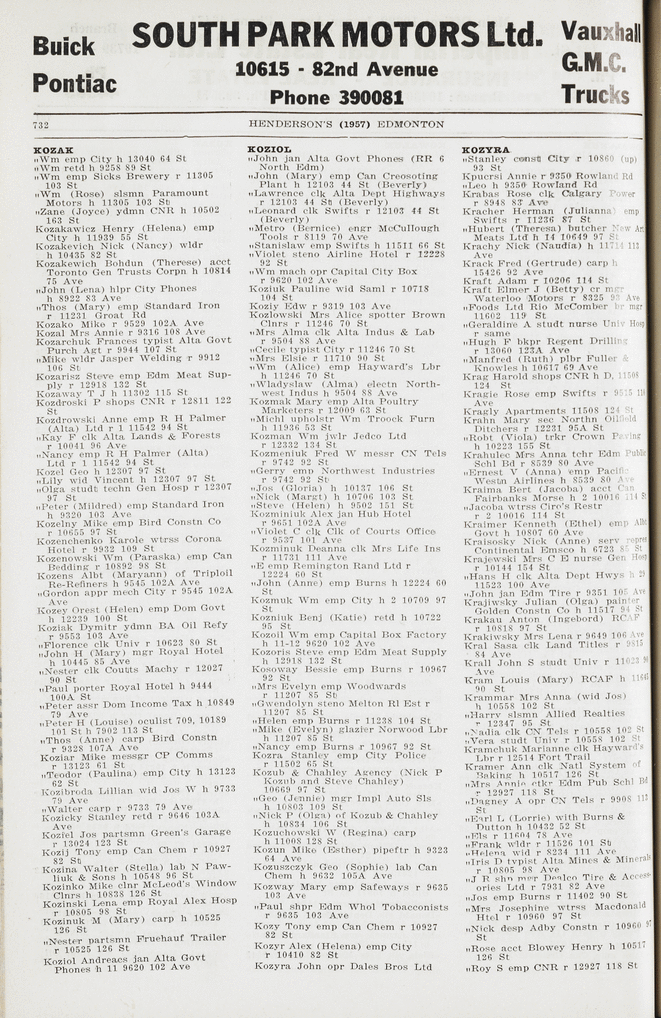 Buick
Pontiac
SOUTH PARK MOTORS Ltd.
10615 - 82nd Avenue
Phone 390081
Vauxhall
G.M.C.
Trucks
732
HENDERSON'S (1957) EDMONTON
KOZAK
„Wm emp City h 13040 64 St
„Wm retd h 9258 89 St
„Wm emp Sicks Brewery r 11305
103 St
„Wm (Rose) slsmn Paramount
Motors h 11305 103 St
„Zane (Joyce) ydmn CNR h 10502
163 St
Kozakawicz Henry (Helena) emp
City h 11939 55 St
Kozakevich Nick (Nancy) wldr
h 10435 82 St
Kozakewich Bohdun (Therese) acct
Toronto Gen Trusts Corpn h 10814
75 Ave
„John (Lena) hlpr City Phones
h 8922 83 Ave
„Thos (Mary) emp Standard Iron
r 11231 Groat Rd
Kozako Mike r 9529 102A Ave
Kozal Mrs Annie r 9316 108 Ave
Kozarchuk Frances typist Alta Govt
Purch Agt r 9944 107 St
„Mike wldr Jasper Welding r 9912
106 St
Kozarisz Steve emp Edm Meat Sup-
ply r 12918 132 St
Kozaway T J h 11302 115 St
Kozdroski P shops CNR r 12811 122
St
Kozdrowski Anne emp R H Palmer
(Alta) Ltd r 1 11542 94 St
„Kay F clk Alta Lands & Forests
r 10041 96 Ave
„Nancy emp R H Palmer (Alta)
Ltd r 1 11542 94 St
Kozel Geo h 12307 97 St
„Lily wid Vincent h 12307 97 St
„Olga studt techn Gen Hosp r 12307
97 St
„Peter (Mildred) emp Standard Iron
h 9320 103 Ave
Kozelny Mike emp Bird Constn Co
r 10655 97 St
Kozenchenko Karole wtrss Corona
Hotel r 9932 109 St
Kozenowski Wm (Paraska) emp Can
Bedding r 10892 98 St
Kozens Albt (Maryann) of Triploil
Re-Refiners h 9545 102A Ave
„Gordon appr mech City r 9545 102A
Ave
Kozey Orest (Helen) emp Dom Govt
h 12239 100 St
Koziak Dymitr ydmn BA Oil Refy
r 9553 103 Ave
„Florence clk Univ r 10623 80 St
„John H (Mary) mgr Royal Hotel
h 10445 85 Ave
„Nester clk Coutts Machy r 12027
90 St
„Paul porter Royal Hotel h 9444
100A St
„Peter assr Dom Income Tax h 10849
79 Ave
„Peter H (Louise) oculist 709, 10189
101 St h 7902 113 St
„Thos (Anne) carp Bird Constn
r 9328 107A Ave
Koziar Mike messgr CP Comms
r 13123 61 St
„Teodor (Paulina) emp City h 13123
62 St
Kozibroda Lillian wid Jos W h 9733
79 Ave
„Walter carp r 9733 79 Ave
Kozicky Stanley retd r 9646 103A
Ave
Koziel Jos partsmn Green's Garage
r 13024 123 St
Kozij Tony emp Can Chem r 10927
82 St
Kozina Walter (Stella) lab N Paw-
liuk & Sons h 10548 96 St
Kozinko Mike clnr McLeod's Window
Clnrs h 10838 126 St
Kozinski Lena emp Royal Alex Hosp
r 10805 98 St
Kozinuk M (Mary) carp h 10525
126 St
„Nester partsmn Fruehauf Trailer
r 10525 126 St
Koziol Andreacs jan Alta Govt
Phones h 11 9620 102 Ave
KOZIOL
„John jan Alta Govt Phones (RR 6
North Edm)
„John (Mary) emp Can Creosoting
Plant h 12103 44 St (Beverly)
„Lawrence clk Alta Dept Highways
r 12103 44 St (Beverly)
„Leonard clk Swifts r 12103 44 St
(Beverly)
„Metro (Bernice) engr McCullough
Tools r 8119 70 Ave
„Stanislaw emp Swifts h 11511 66 St
„Violet steno Airline Hotel r 12228
92 St
„Wm mach opr Capital City Box
r 9620 102 Ave
Koziuk Pauline wid Saml r 10718
104 St
Koziy Edw r 9319 103 Ave
Kozlowski Mrs Alice spotter Brown
Clnrs r 11246 70 St
„Mrs Alma clk Alta Indus & Lab
r 9504 88 Ave
„Cecile typist City r 11246 70 St
„Mrs Elsie r 11710 90 St
„Wm (Alice) emp Hayward's Lbr
h 11246 70 St
„Wladyslaw (Alma) electn North-
west Indus h 9504 88 Ave
Kozmak Mary emp Alta Poultry
Marketers r 12009 63 St
„Michl upholstr Wm Troock Furn
h 11936 53 St
Kozman Wm jwlr Jedco Ltd
r 12332 134 St
Kozmeniuk Fred W messr CN Tels
r 9742 92 St
„Gerry emp Northwest Industries
r 9742 92 St
„Jos (Gloria) h 10137 106 St
„Nick (Margt) h 10706 103 St
„Steve (Helen) h 9502 151 St
Kozminiuk Alex jan Hub Hotel
r 9651 102A Ave
„Violet C clk Clk of Courts Office
r 9537 101 Ave
Kozminuk Deanna clk Mrs Life Ins
r 11731 111 Ave
„E emp Remington Rand Ltd r
12224 60 St
„John (Anne) emp Burns h 12224 60
St
Kozmuk Wm emp City h 2 10709 97
St
Kozniuk Benj (Katie) retd h 10722
95 St
Kozoil Wm emp Capital Box Factory
h 11-12 9620 102 Ave
Kozoris Steve emp Edm Meat Supply
h 12918 132 St
Kosoway Bessie emp Burns r 10967
92 St
„Mrs Evelyn emp Woodwards
r 11207 85 St
„Gwendolyn steno Melton Rl Est r
11207 85 St
„Helen emp Burns r 11238 104 St
„Mike (Evelyn) glazier Norwood Lbr
h 11207 85 St
„Nancy emp Burns r 10967 92 St
Kozra Stanley emp City Police
r 11502 65 St
Kozub & Chahley Agency (Nick P
Kozub and Steve Chahley)
10669 97 St
„Geo (Jennie) mgr Impl Auto Sls
h 10803 109 St
„Nick P (Olga) of Kozub & Chahley
h 10834 106 St
Kozuchowski W (Regina) carp
h 11008 128 St
Kozun Mike (Esther) pipeftr h 9323
64 Ave
Kozuszczyk Geo (Sophie) lab Can
Chem h 9632 105A Ave
Kozway Mary emp Safeways r 9635
103 Ave
„Paul shpr Edm Whol Tobacconists
r 9635 103 Ave
Kozy Tony emp Can Chem r 10927
82 St
Kozyr Alex (Helena) emp City
r 10410 82 St
Kozyra John opr Dales Bros Ltd
KOZYRA
„Stanley const City r 10860 (up)
93 St
Kpucrsi Annie r 9350 Rowland Rd
„Leo h 9350 Rowland Rd
Krabas Rose clk Calgary Power
r 8948 83 Ave
Kracher Herman (Julianna) emp
Swifts r 11236 87 St
„Hubert (Theresa) butcher New Am
Meats Ltd h 14 10649 97 St
Krachy Nick (Naudia) h 11714 113
Ave
Krack Fred (Gertrude) carp h
15426 92 Ave
Kraft Adam r 10206 114 St
Kraft Elmer J (Betty) cr mgr
Waterloo Motors r 8325 93 Ave
„Foods Ltd Rio McComber br mgr
11602 119 St
„Geraldine A studt nurse Univ Hosp
r same
„Hugh F bkpr Regent Drilling
r 13060 123A Ave
„Manfred (Ruth) plbr Fuller &
Knowles h 10617 69 Ave
Krag Harold shops CNR h D, 11508
124 St
Kragie Rose emp Swifts r 9515 118
Ave
Kragly Apartments 11508 124 St
Krahn Mary sec Northn Oilfield
Ditchers r 12231 95A St
„Robt (Viola) trkr Crown Paving
h 10223 155 St
Krahulec Mrs Anna tchr Edm Public
Schl Bd r 8539 80 Ave
„Ernest V (Anna) emp Pacific
Westn Airlines h 8539 80 Ave
Kraima Bert (Jacoba) acct Can
Fairbanks Morse h 2 10016 114 St
„Jacoba wtrss Ciro's Restr
r 2 10016 114 St
Kraimer Kenneth (Ethel) emp Alta
Govt h 10807 60 Ave
Kraisosky Nick (Anne) serv repres
Continental Emsco h 6723 85 St
Krajewski Mrs C E nurse Gen Hosp
r 10144 154 St
„Hans H clk Alta Dept Hwys h 29
11523 100 Ave
„John jan Edm Tire r 9351 105 Ave
Krajiwsky Julian (Olga) painter
Golden Constn Co h 11517 94 St
Krakau Anton (Ingebord) RCAF
r 10818 97 St
Krakiwsky Mrs Lena r 9649 106 Ave
Kral Sasa clk Land Titles r 9815
84 Ave
Krall John S studt Univ r 11023
Ave
Kram Louis (Mary) RCAF h
90 St
Krammar Mrs Anna (wid Jos)
h 10558 102 St
„Harry slsmn Allied Realties
r 12347 95 St
„Nadia clk CN Tels r 10558 102 St
„Vera studt Univ r 10558 102 St
Kramchuk Marianne clk Hayward's
Lbr r 12514 Fort Trail
Kramer Ann clk Natl System of
Baking h 10517 126 St
„Mrs Annie ctkr Edm Pub Schl Bd
r 12927 118 St
„Dagney A opr CN Tels r 9908 112
St
„Earl L (Lorrie) with Burns &
Dutton h 10432 52 St
„Els r 11604 78 Ave
„Frank wldr r 11526 101 St
„Helena wid r 8234 111 Ave
„Iris D typist Alta Mines & Minerals
r 10805 98 Ave
„J R shp mgr Dealco Tire & Access-
ories Ltd r 7931 82 Ave
„Jos emp Burns r 11402 90 St
„Mrs Josephine wtrss Macdonald
Htel r 10960 97 St
„Nick desp Adby Constn r 10960 97
St
„Rose acct Blowey Henry h 10517
126 St
„Roy S emp CNR r 12927 118 St